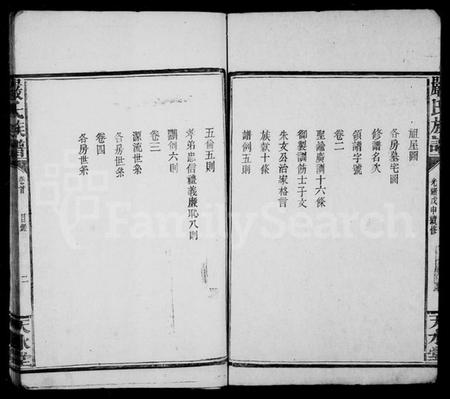 嚴氏族譜
光緒戊申續修
天水堂
祖屋圖
各房墓宅圖
修譜名次
領譜字號
卷二
聖諭廣訓十六條
御製訓飭士子文
朱文公治家格言
族獻十條
譜例五則
五倫五則
孝弟忠信禮義廉恥八則
關例六則
卷三
源流世系
各房世系
卷四
各房世系
嚴氏族譜
卷首
目錄
二
天水堂
FamilySearch